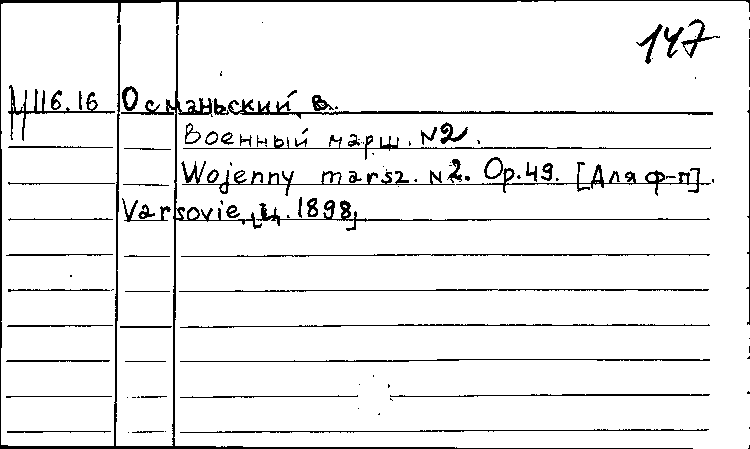 147
М116.16 Османьский, В.
Военный марш. №2.
Wojenny marsz. №2. Op.49. [Для ф-п].
Varsovie, [ц. 1898]